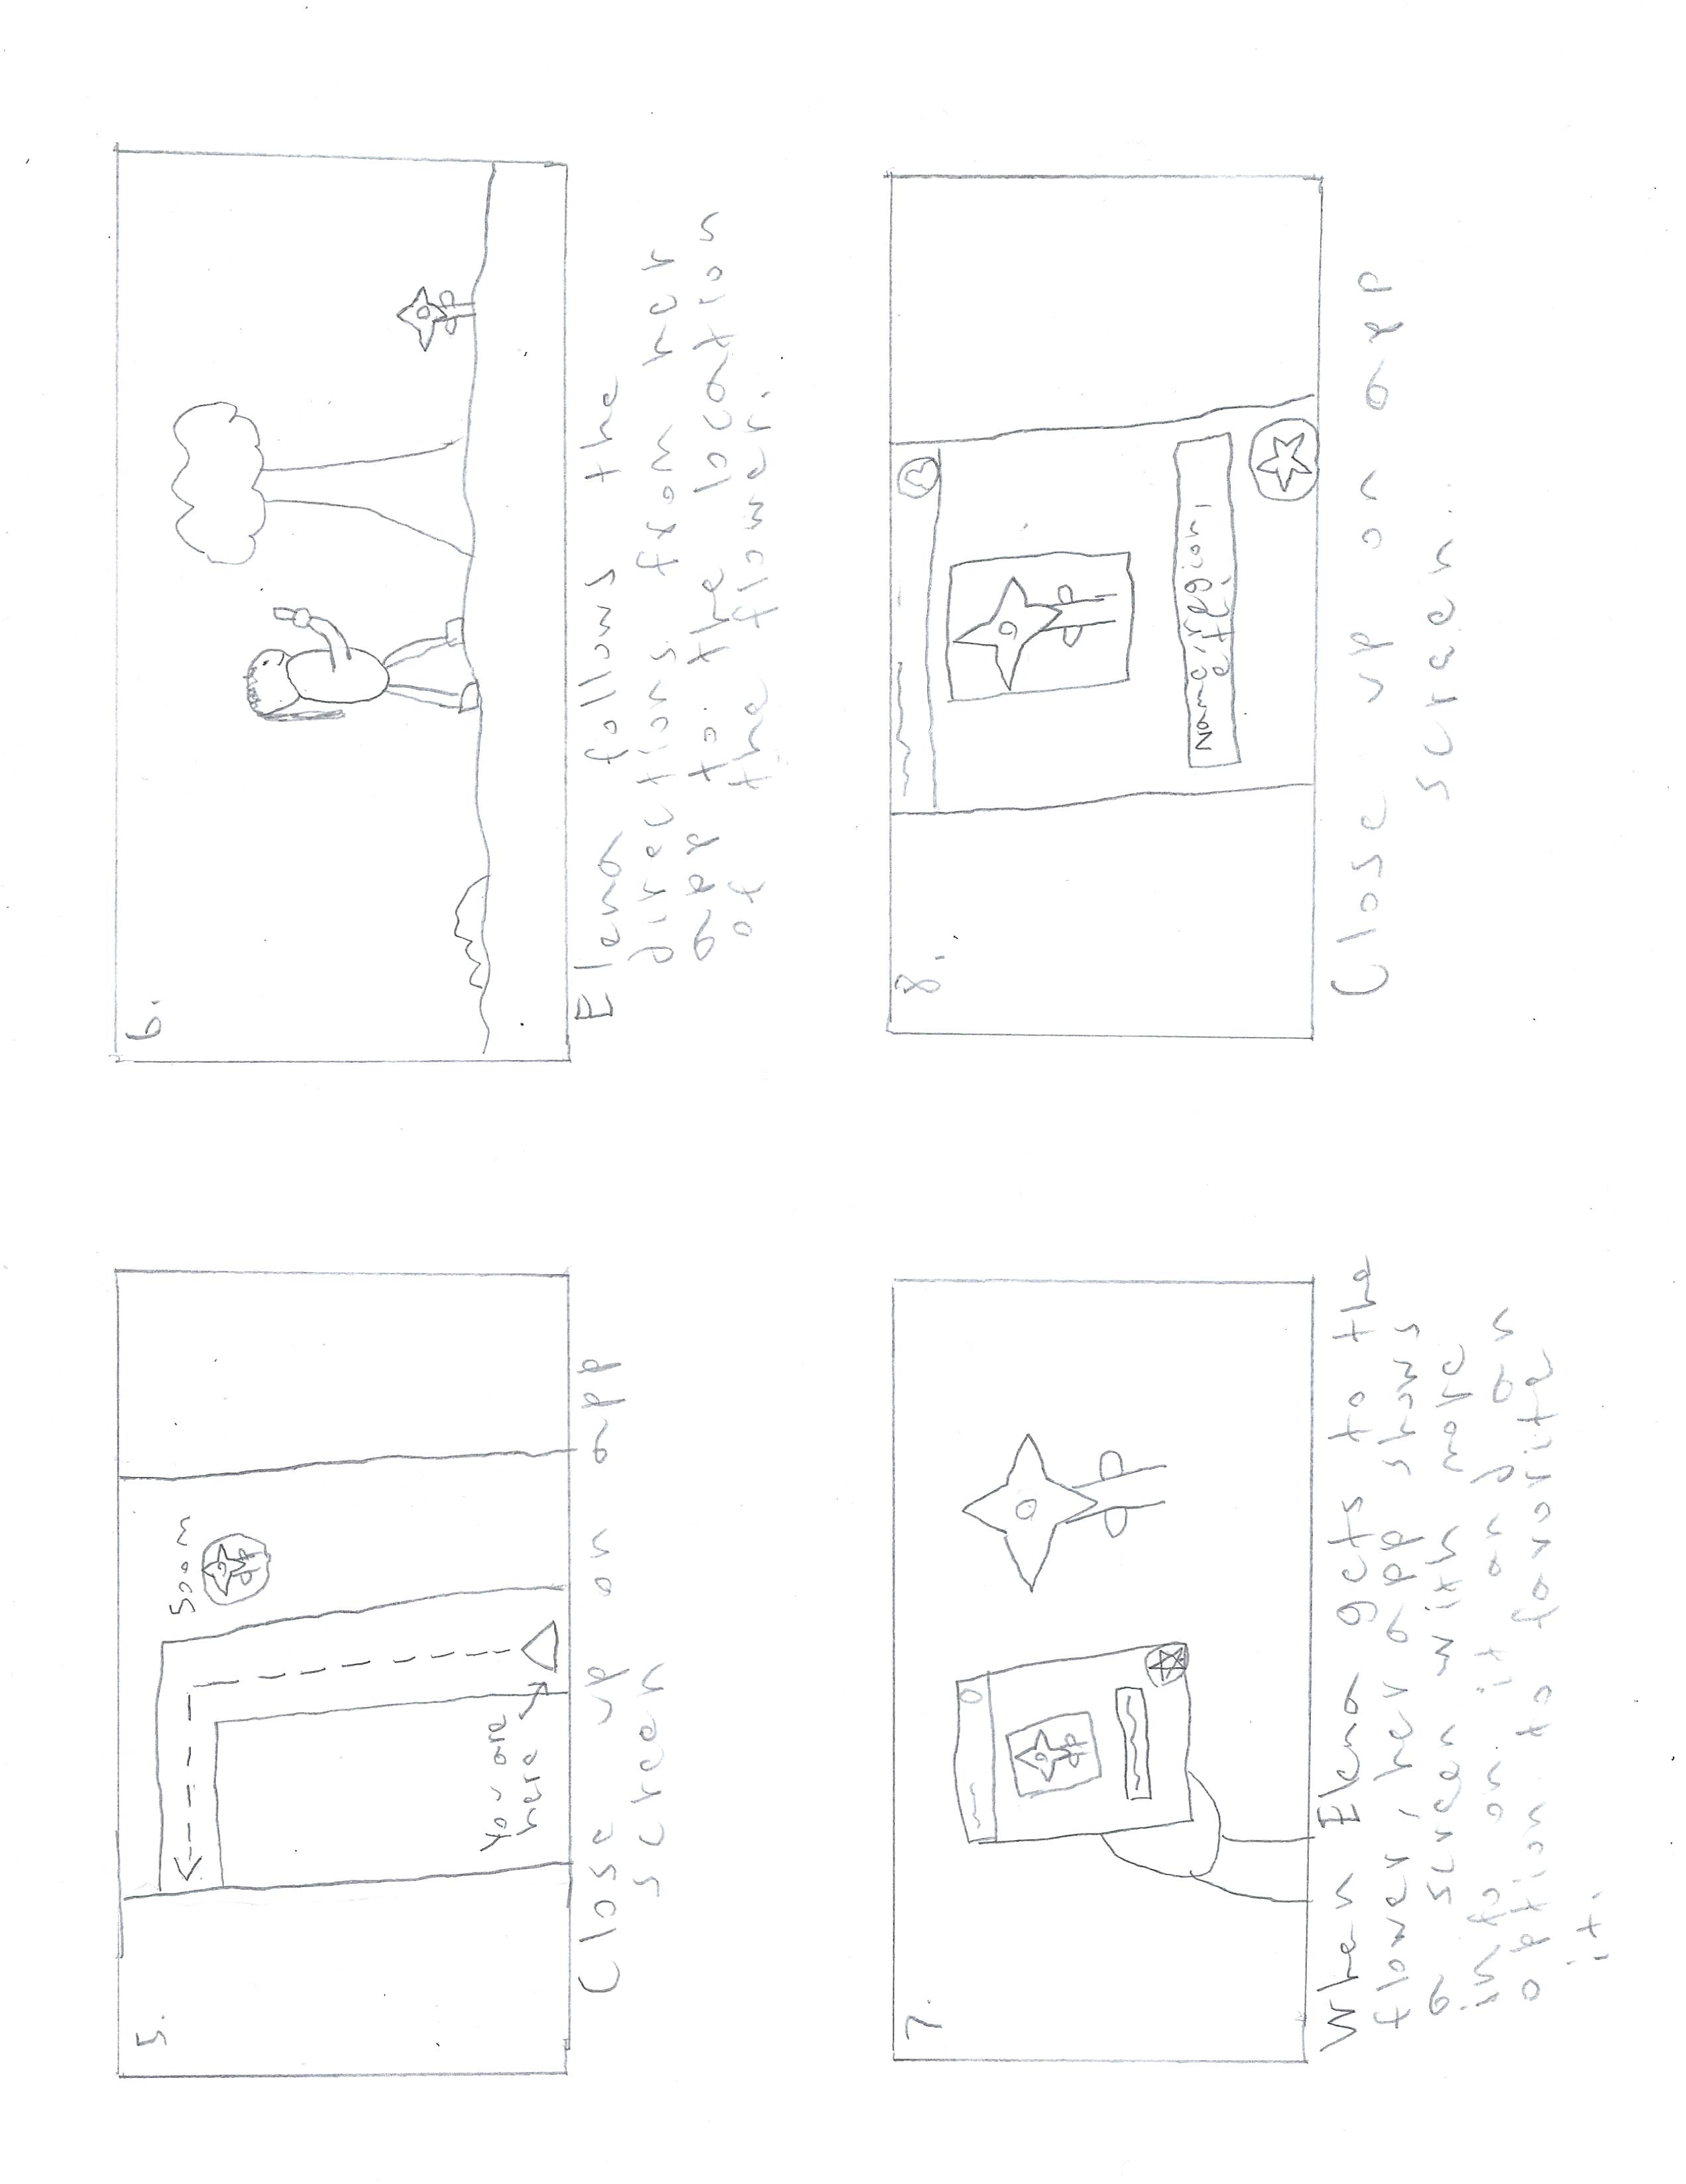 5.
500m
You are
here
Close up on app
screen
6.
Elena follows the
directions from her
app to the location
of the flower.
7.
When Elena gets to the
flower, her app shows
a screen with more
info on it and an
option to favorite
it.
8.
Name,
Close up on app
screen.